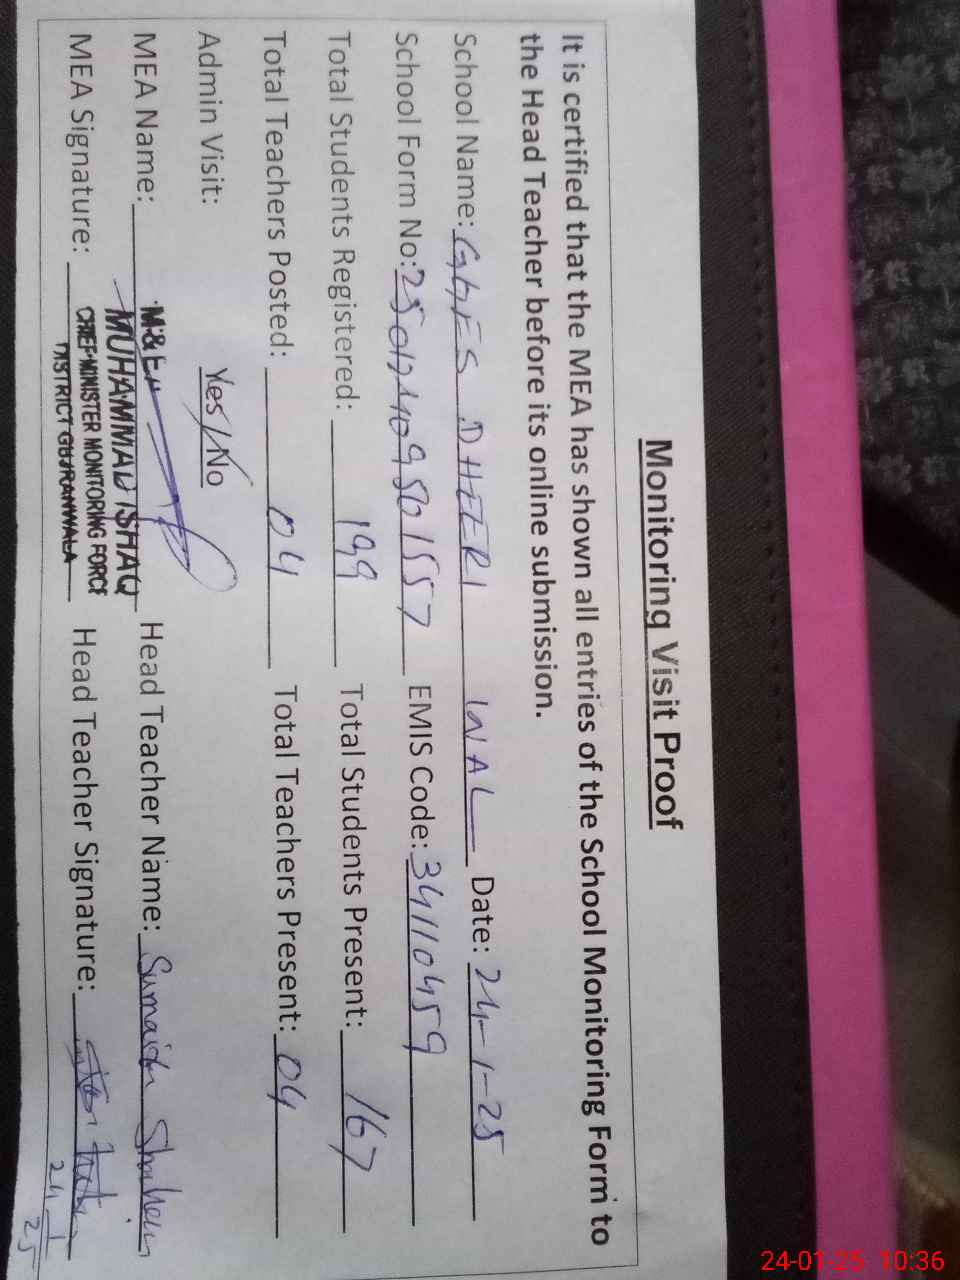 Monitoring Visit Proof
It is certified that the MEA has shown all entries of the School Monitoring Form to
the Head Teacher before its online submission.
School Name: GGES DHERI WAL Date: 24-1-25
School Form No: EMIS Code: 34110459
Total Students Registered: 199 Total Students Present: 167
Total Teachers Posted: 04 Total Teachers Present: 04
Admin Visit: Yes/No
MEA Name: M&E MUHAMMAD ISHAQ Head Teacher Name: Sumaira Shaheen
CHIEF MINISTER MONITORING FORCE
MEA Signature: DISTRICT GUJRANWALA Head Teacher Signature:
24 1
25
24-01-25 10:36